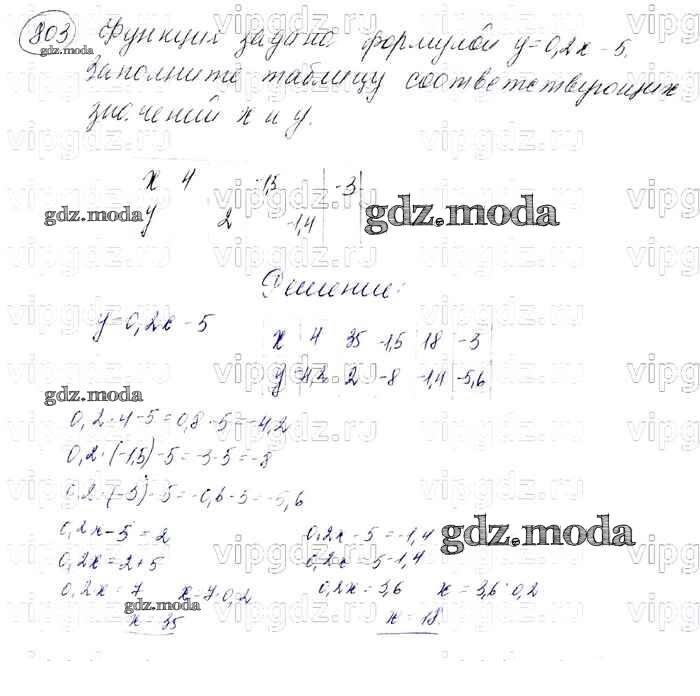 803 Функция задана формулой y=0,2x-5.
Заполните таблицу соответствующих
значений x и y.
x 4 -1,5 -3
y 2 -1,4
Решение:
y=0,2x-5
x 4 35 -1,5 18 -3
y -4,2 2 -8 -1,4 -5,6
0,2·4-5=0,8-5=-4,2
0,2·(-1,5)-5=-3-5=-8
0,2·(-3)-5=-0,6-5=-5,6
0,2x-5=2
0,2x=2+5
0,2x=7 x=7:0,2
x=35
0,2x-5=-1,4
0,2x=5-1,4
0,2x=3,6 x=3,6:0,2
x=18.
gdz.moda
gdz.moda
gdz.moda
gdz.moda
gdz.moda
gdz.moda
vipgdz.ru